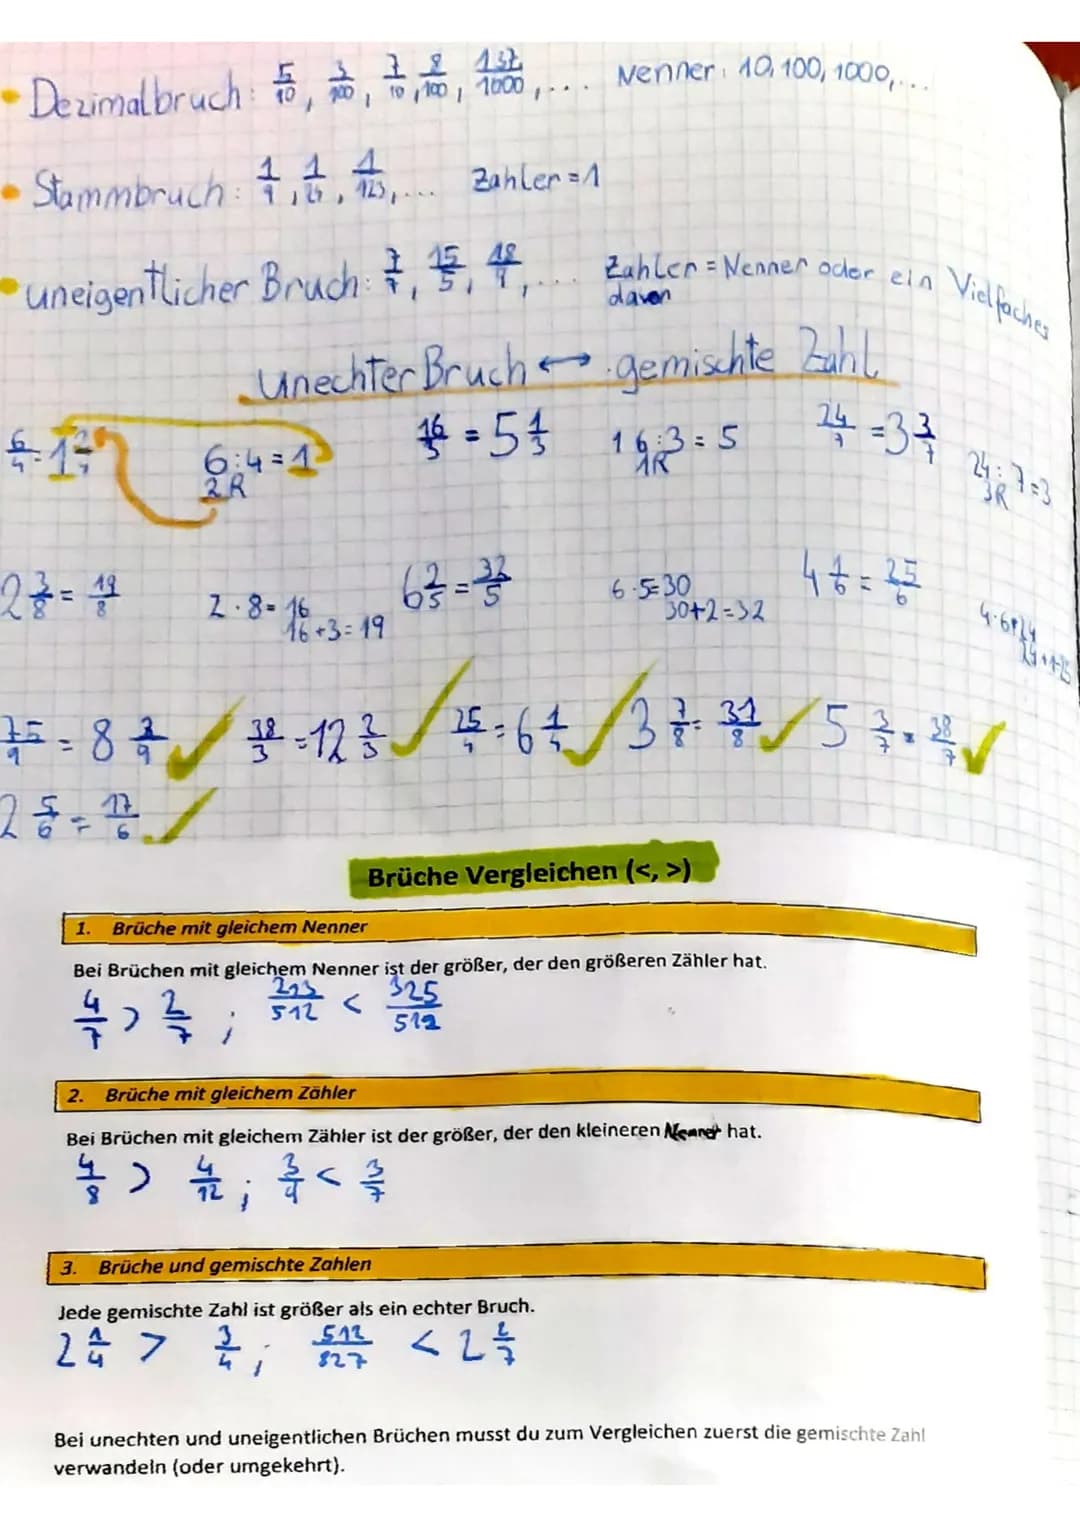 • Dezimalbruch: 5/10, 3/100, 7/10, 8/100, 137/1000, ... Nenner: 10, 100, 1000, ...
• Stammbruch: 1/9, 1/24, 1/123, ... Zähler = 1
• uneigentlicher Bruch: 7/7, 15/5, 18/9, ... Zähler = Nenner oder ein Vielfaches
davon
Unechter Bruch ↔ gemischte Zahl
6/4 = 1 2/4 6:4=1 16/3 = 5 1/3 16:3=5 24/7 = 3 3/7 24:7=3
2R 1R 3R
2 3/8 = 19/8 2·8=16 6 2/5 = 32/5 6·5=30 4 1/6 = 25/6
16+3=19 30+2=32 24+1=25
75/9 = 8 3/9 ✓ 38/3 = 12 2/3 ✓ 25/4 = 6 1/4 ✓ 3 7/8 = 31/8 ✓ 5 3/7 = 38/7 ✓
2 5/6 = 17/6 ✓
Brüche Vergleichen (<, >)
1. Brüche mit gleichem Nenner
Bei Brüchen mit gleichem Nenner ist der größer, der den größeren Zähler hat.
4/7 > 2/7 ; 213/512 < 325/512
2. Brüche mit gleichem Zähler
Bei Brüchen mit gleichem Zähler ist der größer, der den kleineren Nenner hat.
4/8 > 4/12 ; 3/9 < 3/7
3. Brüche und gemischte Zahlen
Jede gemischte Zahl ist größer als ein echter Bruch.
2 1/4 > 3/4 ; 512/827 < 2 2/7
Bei unechten und uneigentlichen Brüchen musst du zum Vergleichen zuerst die gemischte Zahl
verwandeln (oder umgekehrt).